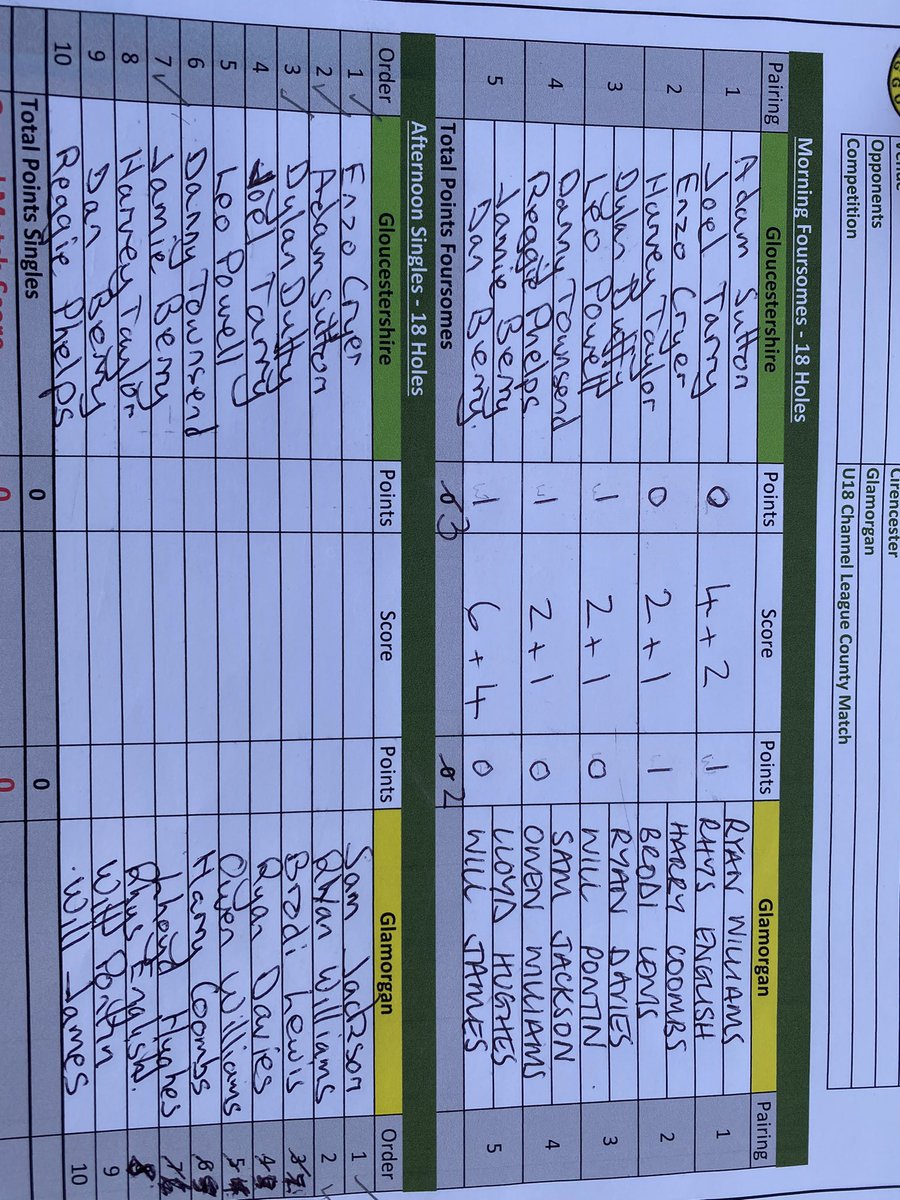 GGU
Venue Cirencester
Opponents Glamorgan
Competition U18 Channel League County Match
Morning Foursomes - 18 Holes
Pairing Gloucestershire Points Score Points Glamorgan Pairing
1 Adam Sutton 0 4+2 1 RYAN WILLIAMS 1
Joel Tarry RHYS ENGLISH
2 Enzo Cryer 0 2+1 1 HARRY COOMBS 2
Harvey Taylor BRODI LEWIS
3 Dylan Duffy 1 2+1 0 RYAN DAVIES 3
Leo Powell WILL PONTIN
4 Danny Townsend 1 2+1 0 SAM JACKSON 4
Reggie Phelps OWEN WILLIAMS
5 Jamie Berry 1 6+4 0 LLOYD HUGHES 5
Dan Berry. WILL JAMES
Total Points Foursomes 3 2
Afternoon Singles - 18 Holes
Order Gloucestershire Points Score Points Glamorgan Order
1 ✓ Enzo Cryer Sam Jackson 1 ✓
2 ✓ Adam Sutton Ryan Williams 2 ✓
3 ✓ Dylan Duffy Brodi Lewis 3
4 Joel Tarry Ryan Davies 4
5 Leo Powell Owen Williams 5
6 Danny Townsend Harry Coombs 6
7 ✓ Jamie Berry Lloyd Hughes 7
8 Harvey Taylor Rhys English. 8
9 Dan Berry Will Pontin 9
10 Reggie Phelps Will James 10
Total Points Singles 0 0
0 0